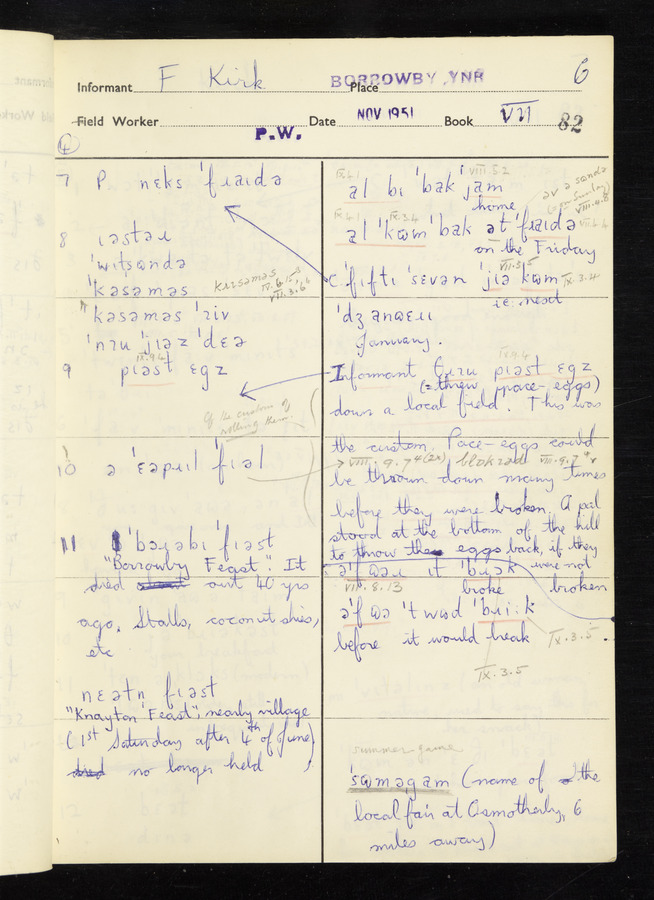 Informant F Kirk
Place BORROWBY YNR
6
Field Worker P.W.
Date NOV 1951
Book VII 82
7 P nɛks ˈfɹaɪdə
8 ɪəstəɹ
ˈwɪtsəndə
ˈkəsəməs kɹɪsəməs
VII.3.6
ˈkəsəməs ˈɪv
ˈnɪu ˈjɪəz ˈdɛə
IX.9.4
9 pɪəst ɛgz
of the custom of
rolling them
10 ə ˈɛəpɹɪl ˈfɪəl
11 ˈbɔɹəbɪ ˈfɪəst
"Borrowby Feast". It
died about out 40 yrs
ago. Stalls, coconut shies,
etc
nɛətn fɪəst
"Knayton Feast", nearby village
(1st Saturday after 4th of June)
died no longer held
VIII.5.2
al bɪ ˈbak ˈjam
home
IX.3.4
al ˈkʊm ˈbak ət ˈfɹaɪdə
on the Friday
(on Sunday)
ˈfɪftɪ ˈsɛvən ˈjɪə kʊm IX.3.4
ie: next
ˈdʒanʊɛɹɪ
January.
IX.9.4
Informant θɹɪu pɪəst ɛgz
(= threw pace-eggs)
down a local field. This was
the custom. Pace-eggs could
VIII.9.7
be thrown down many times
before they were broken. A pal
stood at the bottom of the hill
to throw the eggs back, if they
were not
broken
broke
VII.8.13
before it would break
IX.3.5.
IX.3.5
summer game
ˈsʊməgəm (name of the
local fair at Osmotherly, 6
miles away)